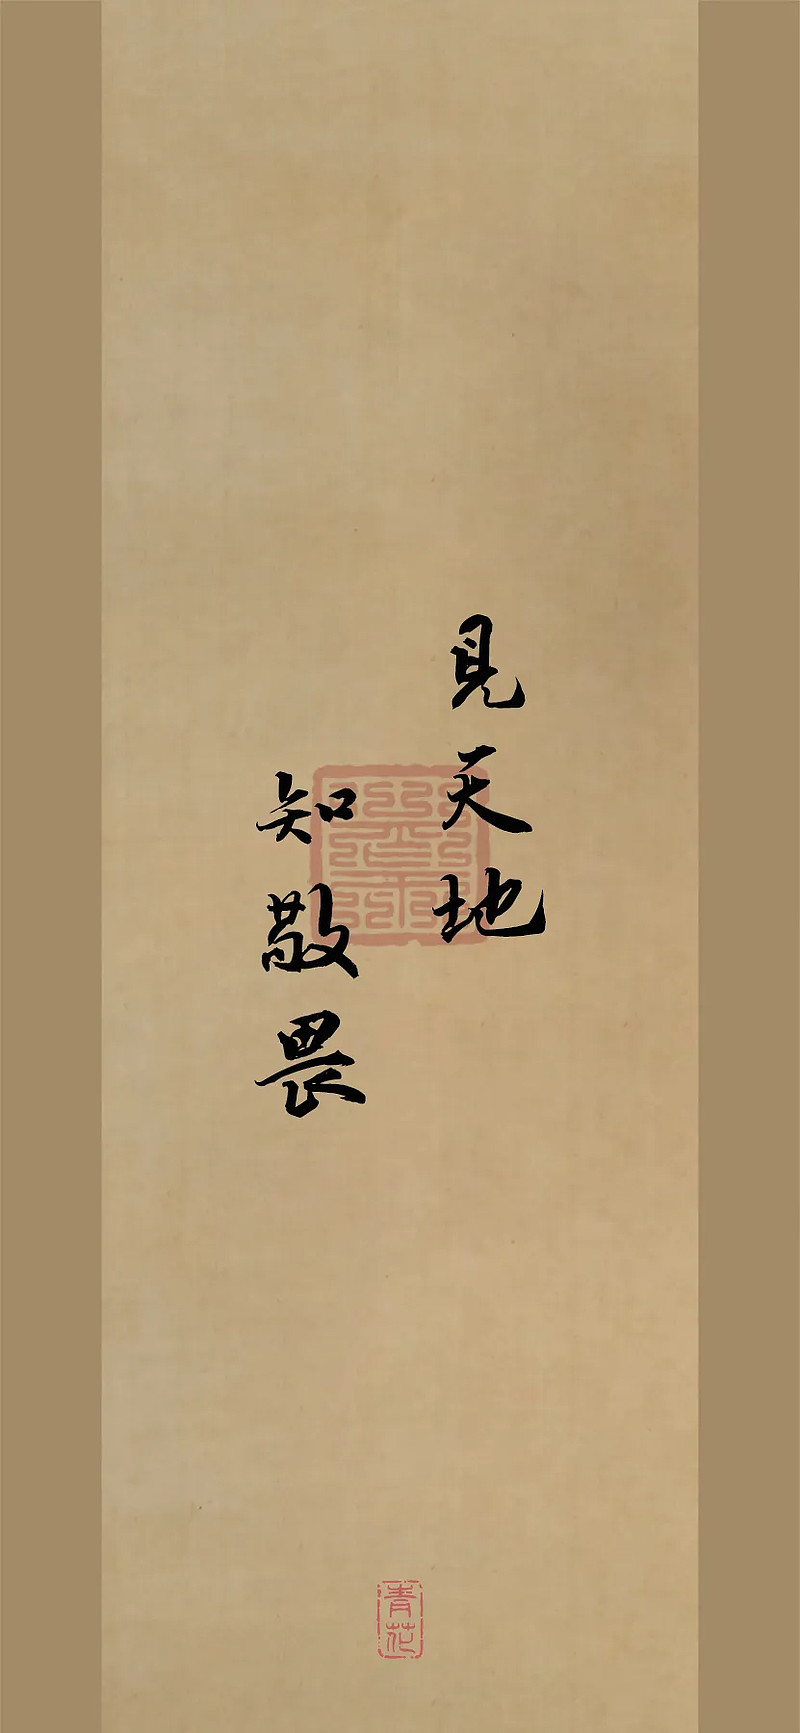 見天地
知敬畏
青花